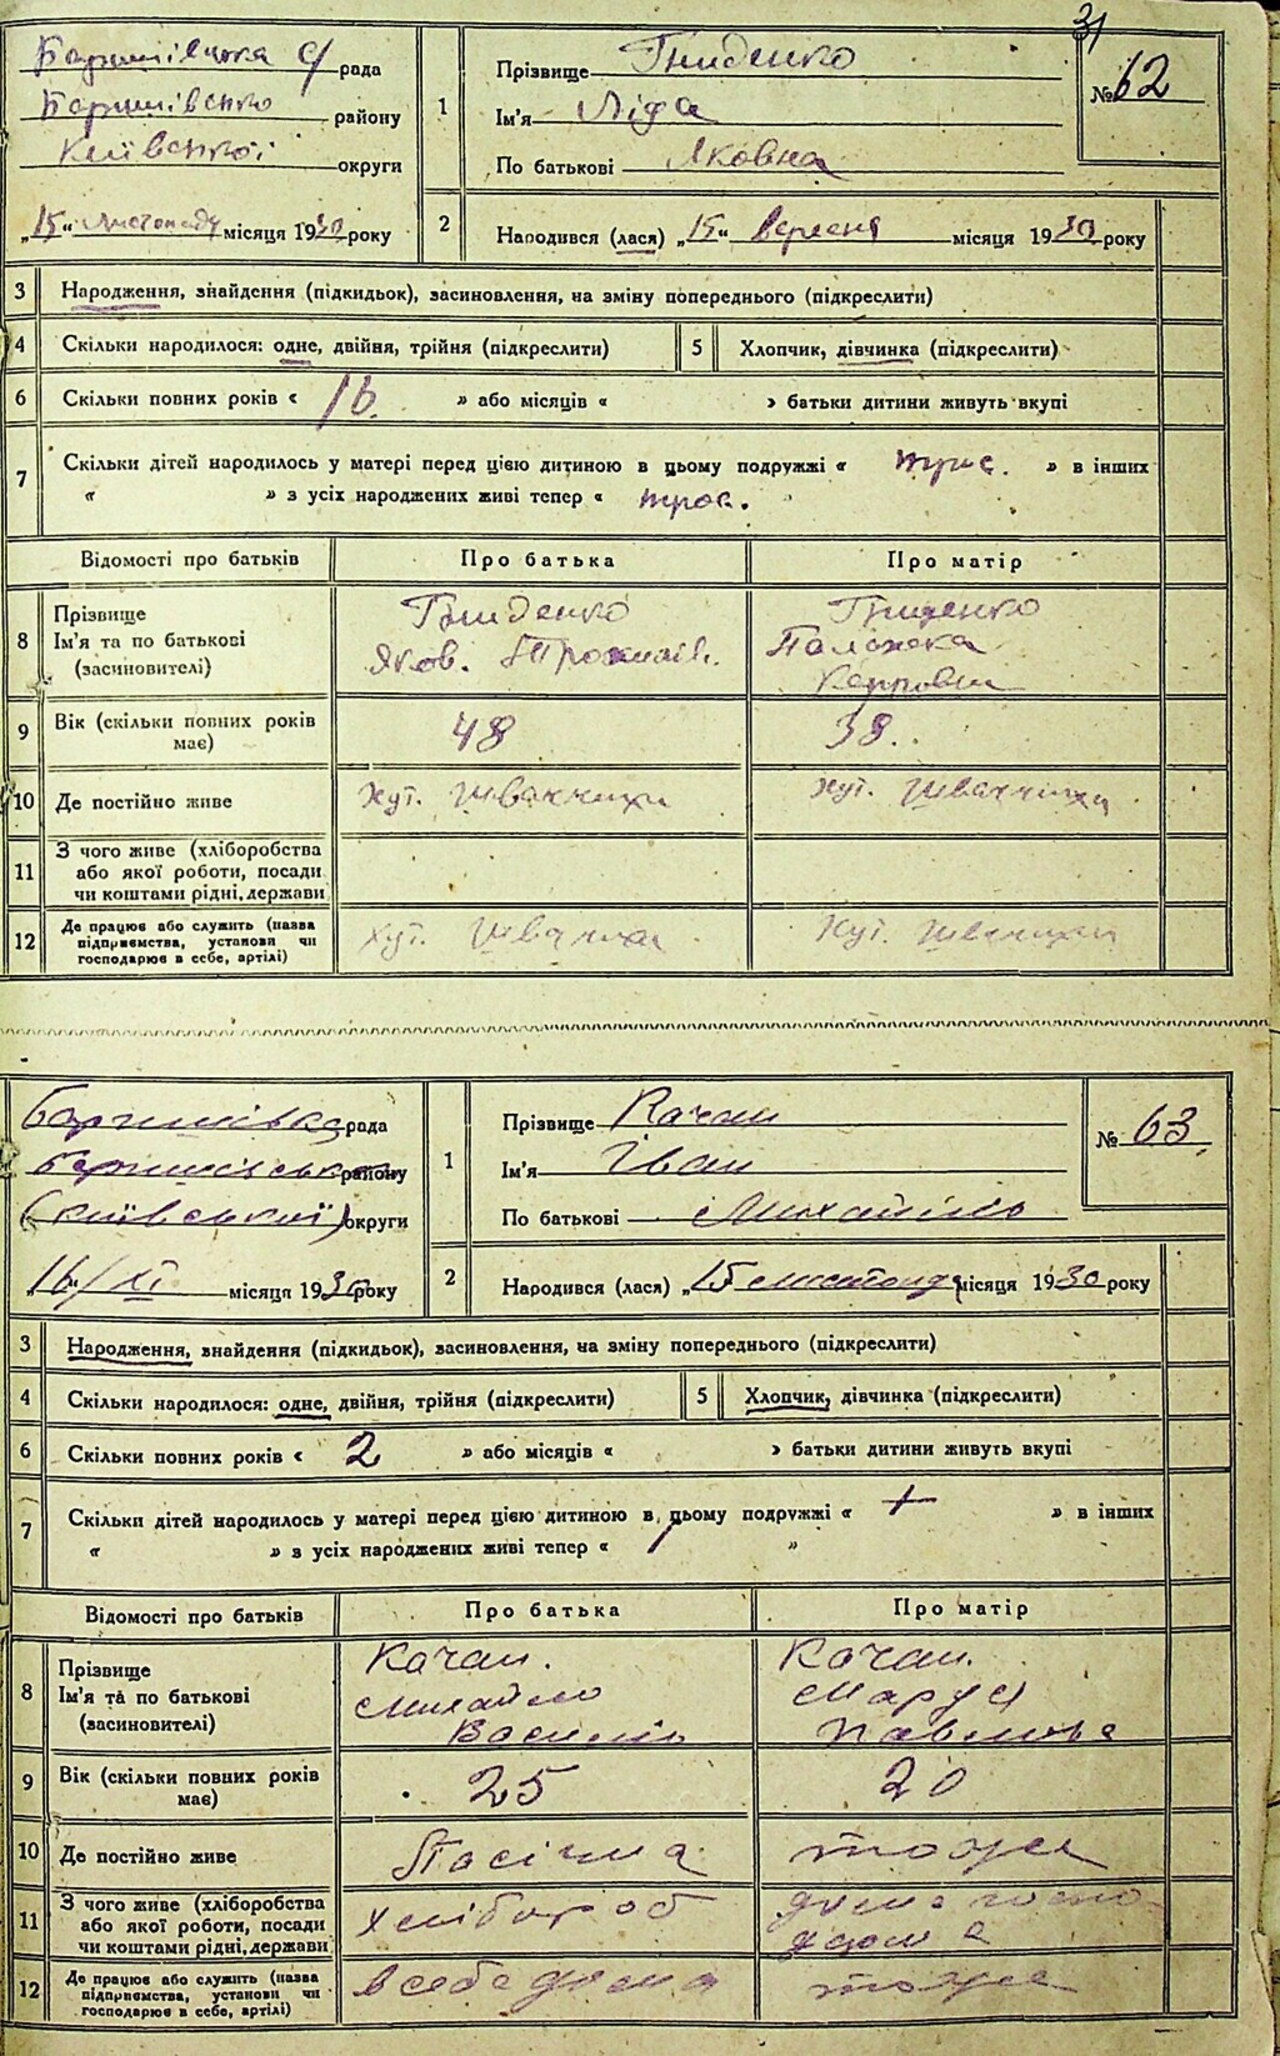 31
Баришівська с/рада
Баришівсько району
Київської округи
„15“ Листопаду місяця 1930 року
1
Прізвище Гниденко
Ім'я Ліда
По батькові Яковна
№ 62
2
Народився (лася) „15“ вересня місяця 1930 року
3 Народження, знайдення (підкидьок), засиновлення, на зміну попереднього (підкреслити)
4 Скільки народилося: одне, двійня, трійня (підкреслити) 5 Хлопчик, дівчинка (підкреслити)
6 Скільки повних років « 16. » або місяців « › батьки дитини живуть вкупі
7 Скільки дітей народилось у матері перед цією дитиною в цьому подружжі « » в інших
« » з усіх народжених живі тепер « »
Відомості про батьків Про батька Про матір
8 Прізвище
Ім'я та по батькові
(засиновителі)
Гниденко
Яков.
Гниденко
Палажка
Карповна
9 Вік (скільки повних років має) 48 38.
10 Де постійно живе хут. Швачихи хут. Швачихи
11 З чого живе (хліборобства
або якої роботи, посади
чи коштами рідні, держави
12 Де працює або служить (назва
підприємства, установи чи
господарює в себе, артілі)
Хут. Швачихи Хут. Швачихи
Баришівська рада
Баришівськ району
(Київської) округи
„16“/XI місяця 1930 року
1
Прізвище Качан
Ім'я Іван
По батькові Михайлів
№ 63
2
Народився (лася) „15 листопада місяця 1930 року
3 Народження, знайдення (підкидьок), засиновлення, на зміну попереднього (підкреслити)
4 Скільки народилося: одне, двійня, трійня (підкреслити) 5 Хлопчик, дівчинка (підкреслити)
6 Скільки повних років « 2 » або місяців « › батьки дитини живуть вкупі
7 Скільки дітей народилось у матері перед цією дитиною в цьому подружжі « » в інших
« » з усіх народжених живі тепер « »
Відомості про батьків Про батька Про матір
8 Прізвище
Ім'я та по батькові
(засиновителі)
Качан.
Михайло
Василів
Качан.
Маруся
Павлова
9 Вік (скільки повних років має) 25 20
10 Де постійно живе Пасічна тоже
11 З чого живе (хліборобства
або якої роботи, посади
чи коштами рідні, держави
хлібороб
12 Де працює або служить (назва
підприємства, установи чи
господарює в себе, артілі)
в себе дома тоже